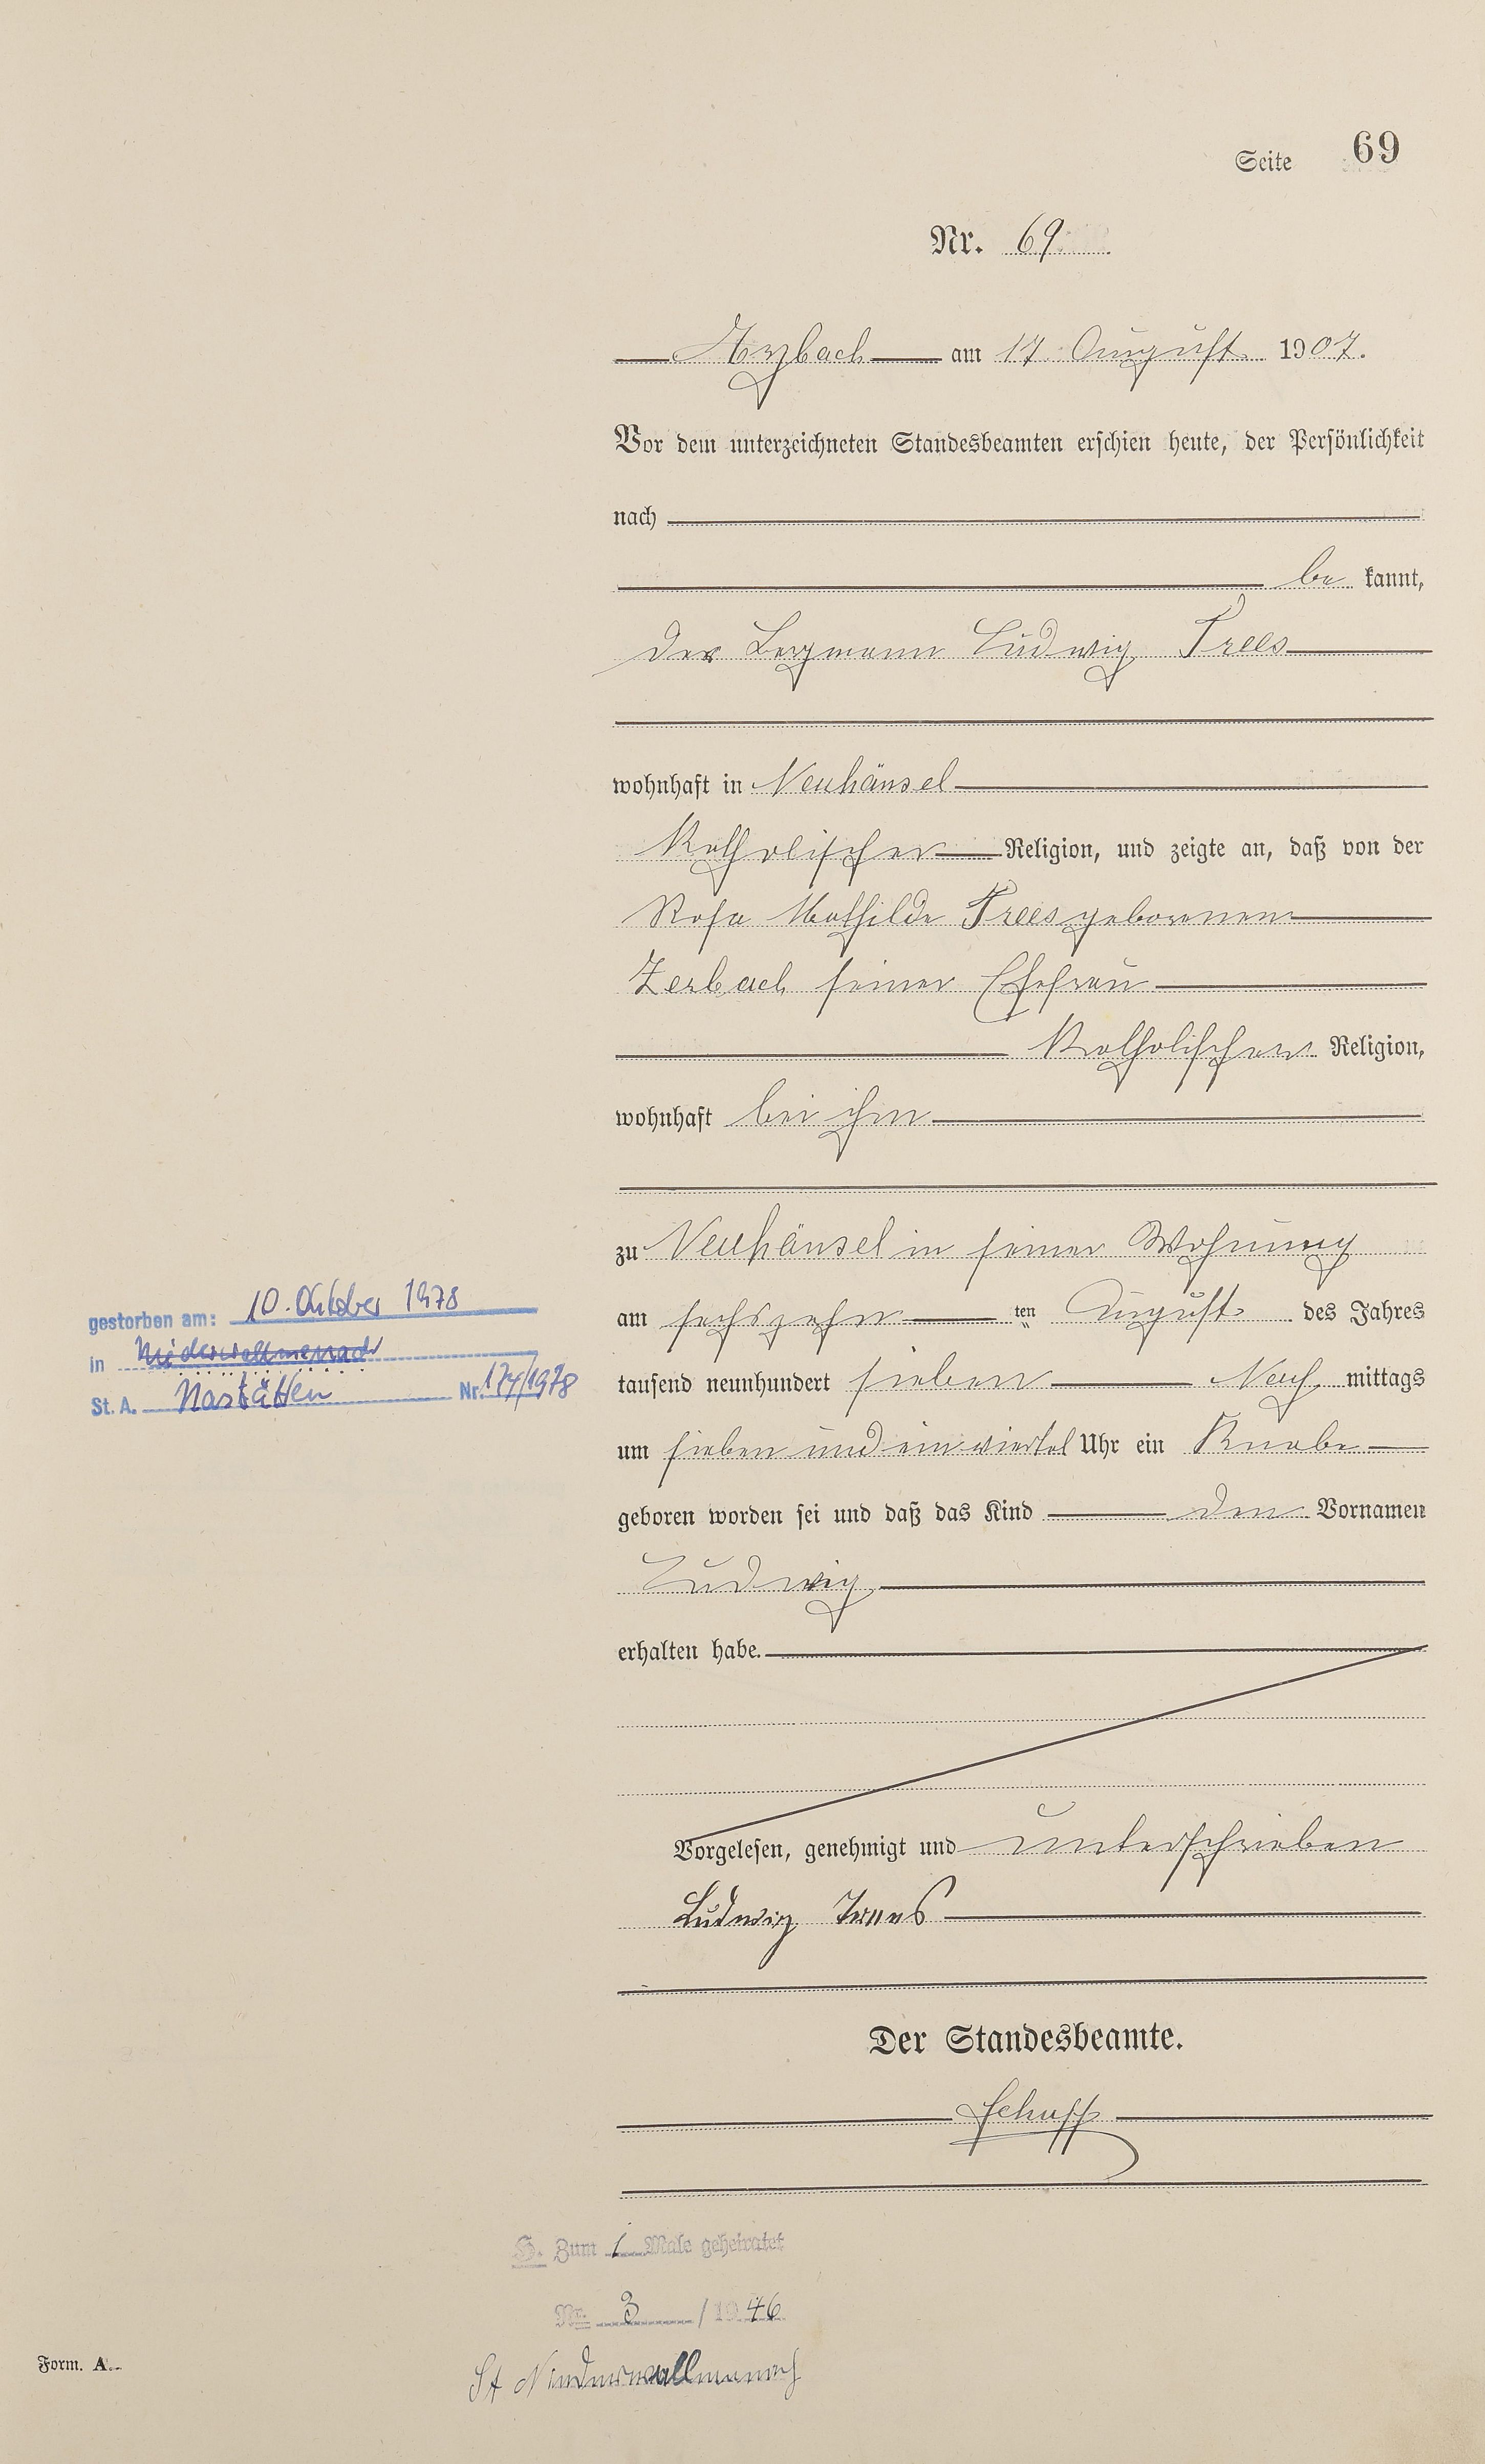 Seite 69
Nr. 69
Arzbach am 17 August 1907.
Vor dem unterzeichneten Standesbeamten erschien heute, der Persönlichkeit
nach
be kannt,
der Bergmann Ludwig Trees
wohnhaft in Neuhäusel
Katholischer Religion, und zeigte an, daß von der
Rosa Mathilde Trees geborenen
Zerbach seiner Ehefrau
Katholischen Religion,
wohnhaft bei ihm
zu Neuhäusel in seiner Wohnung
am sechszehn ten August des Jahres
tausend neunhundert sieben Nach mittags
um sieben und ein viertel Uhr ein Knabe
geboren worden sei und daß das Kind den Vornamen
Ludwig
erhalten habe.
Vorgelesen, genehmigt und unterschrieben
Ludwig Trees
Der Standesbeamte.
gestorben am: 10. Oktober 1978
in Niederwallmenach
St. A. Nastätten Nr. 174/1978
H. Zum 1 Male geheiratet
Nr. 3 / 1946
St Niederwallmenach
Form. A.